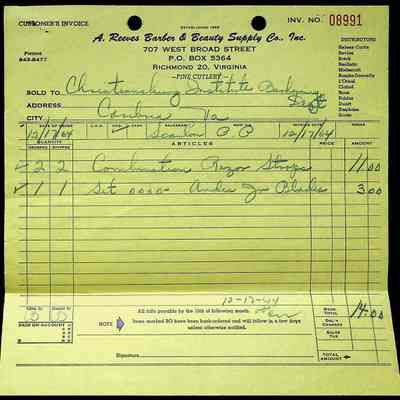 CUSTOMER'S INVOICE
ESTABLISHED
INV. NO. 08991
A. Reeves Barber & Beauty Supply Co., Inc.
707 WEST BROAD STREET
P.O. BOX 5364
RICHMOND 20, VIRGINIA
—FINE CUTLERY—
Phones
643-8477
DISTRIBUTORS
SOLD TO Christiansburg Institute
Dept
ADDRESS Cambria
CITY Va
12/17/64 Scanlon P P 12/17/64
QUANTITY ARTICLES PRICE AMOUNT
2 2 Combination Razor Strops 11.00
1 1 Set 0000 Andis Jr Blades 3.00
12-17-64
PAID ON ACCOUNT
NOTE
All bills payable by the 10th of following month.
Items marked BO have been back-ordered and will follow in a few days
unless otherwise notified.
Signature
MDSE. TOTAL 14.00
DEL'Y CHARGES
SALES TAX
TOTAL AMOUNT